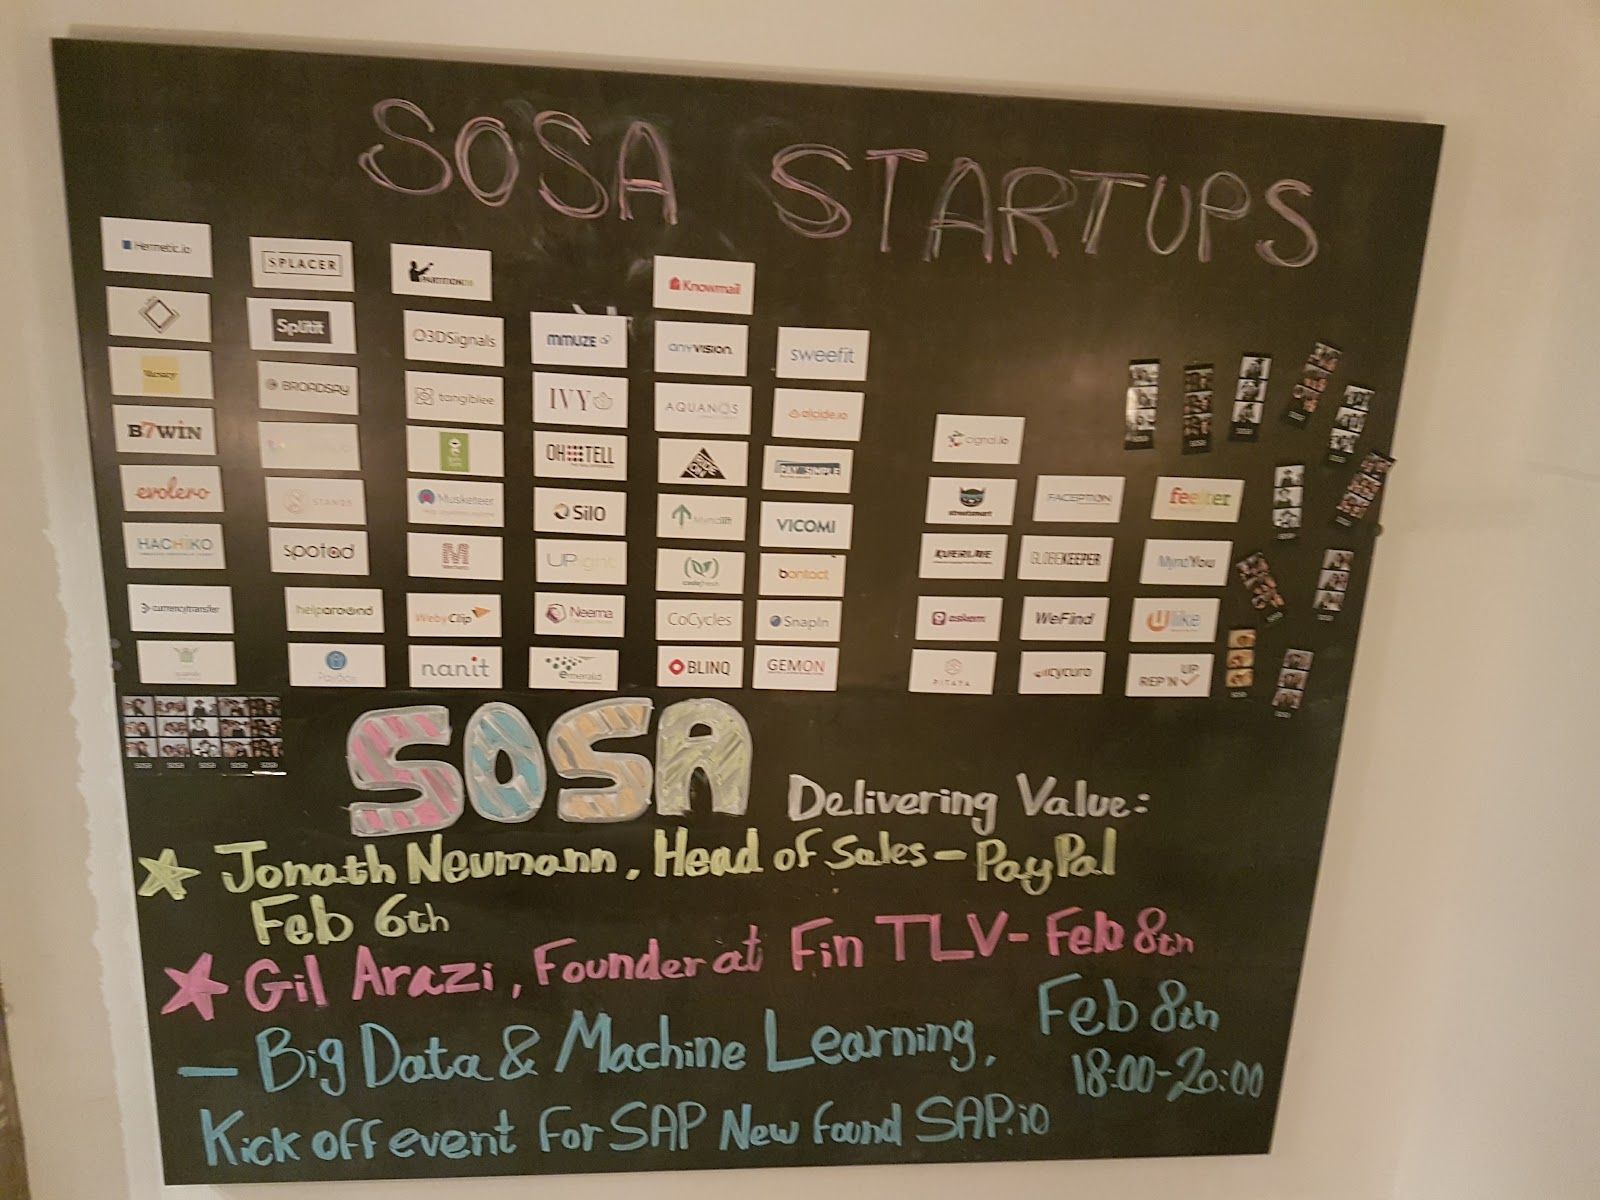 SOSA STARTUPS
Hermetic.io
SPLACER
Knowmail
Splitit
O3DSignals
mmuze
anyvision
sweefit
BROADSAY
tangiblee
IVY
AQUANOS
alcide.io
B7WIN
OH TELL
PAY SIMPLE
cignal.io
evolero
STANDS
Musketeer
SilO
Myndlift
VICOMI
streetsmart
FACEPTION
feelter
HACHiKO
spotad
UPlight
codefresh
bontact
KUERLIVE
GLOBEKEEPER
MyndYou
currencytransfer
helparound
WebyClip
Neema
CoCycles
SnapIn
oskem
WeFind
like
PayBox
nanit
emerald
BLINQ
GEMON
PITAYA
cycuro
REP'N UP
SOSA Delivering Value:
Jonath Neumann, Head of Sales - PayPal
Feb 6th
Gil Arazi, Founder at Fin TLV - Feb 8th
- Big Data & Machine Learning, Feb 8th
18:00-20:00
Kick off event For SAP New found SAP.io